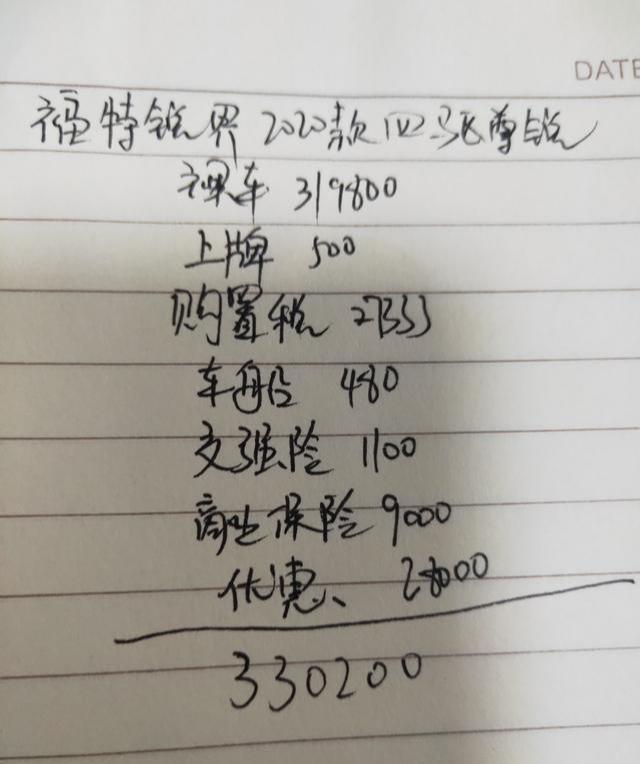 DATE
福特锐界 2020款四驱尊锐
裸车 319800
上牌 500
购置税 27333
车船 480
交强险 1100
商业保险 9000
优惠、 28000
330200